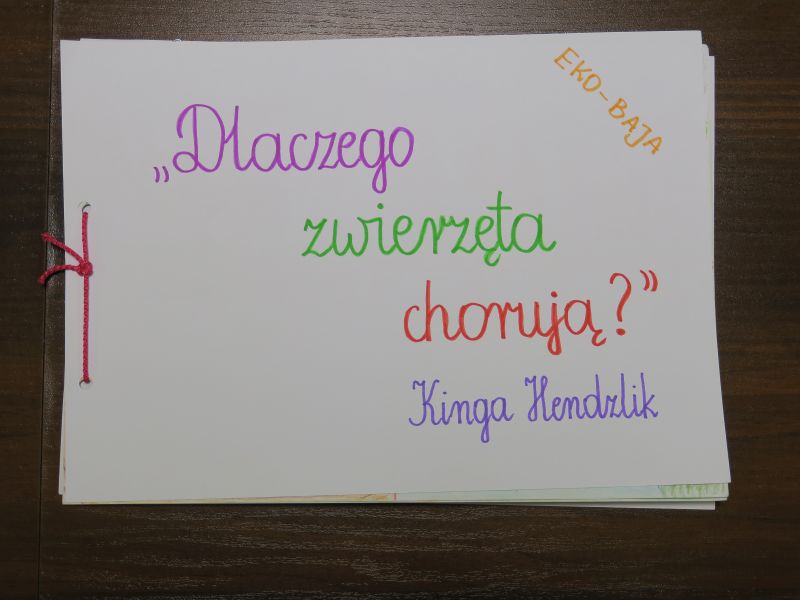 EKO-BAJA
„Dlaczego
zwierzęta
chorują?”
Kinga Hendzlik